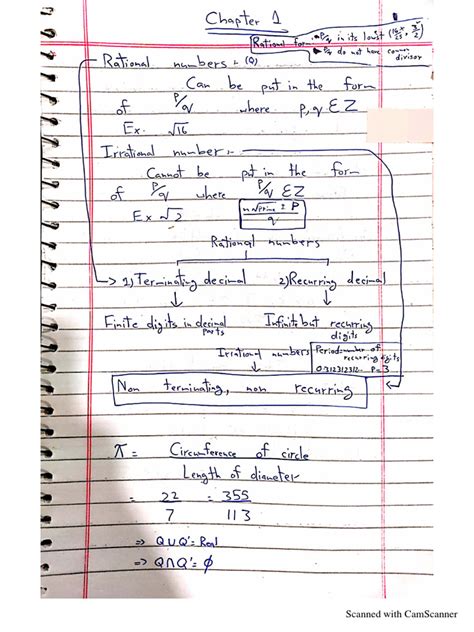 Chapter 1
Rational form P/q in its lowest (16/25, x²/2)
P/q do not have common divisor
Rational numbers :- (Q)
Can be put in the form
of P/q where p,q ∈ Z
Ex. √16
Irrational number :-
Cannot be put in the form
of P/q where P/q ∈ Z
Ex √2
n√prime ± P / q
Rational numbers
1) Terminating decimal 2) Recurring decimal
Finite digits in decimal parts
Infinite but recurring digits
Irrational numbers
Period = number of recurring digits
0.312312312.. P=3
Non terminating, non recurring
π = Circumference of circle
Length of diameter
= 22/7 = 355/113
⇒ Q∪Q'= Real
⇒ Q∩Q'= ϕ
Scanned with CamScanner